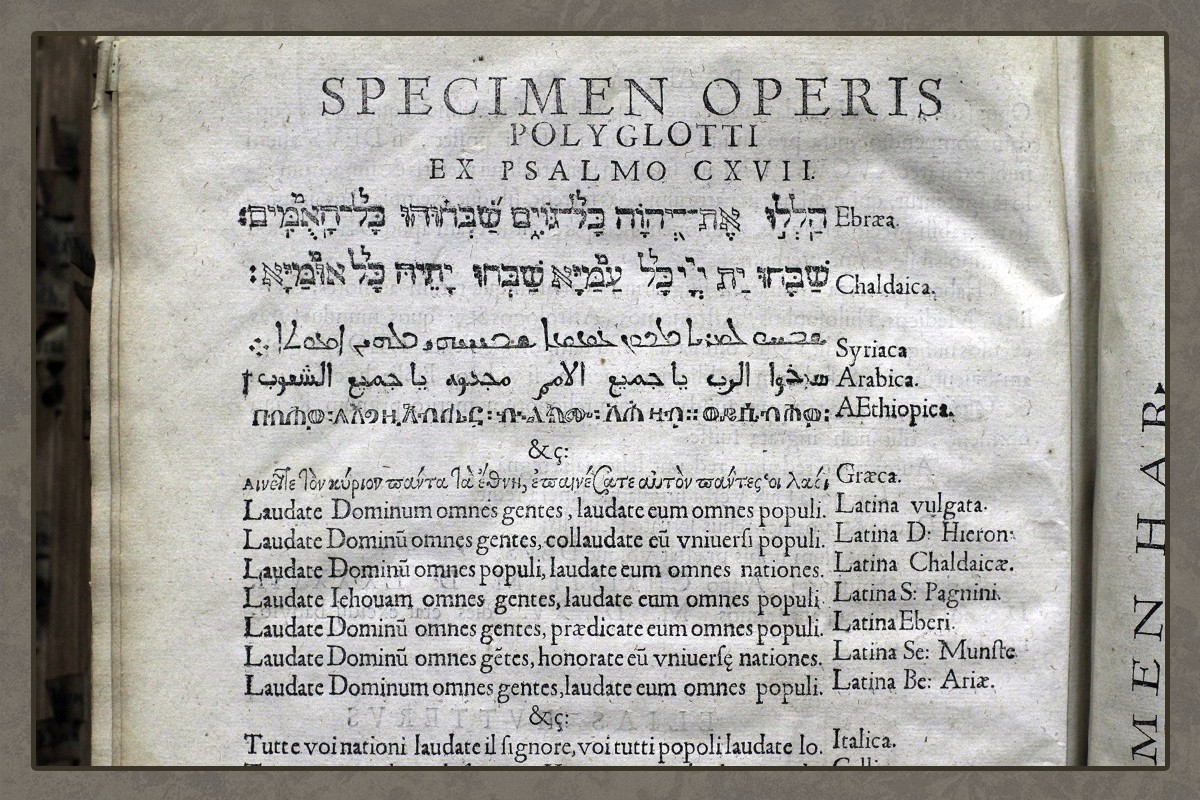 SPECIMEN OPERIS
POLYGLOTTI
EX PSALMO CXVII.
הַלְלוּ אֶת־יְהוָֹה כָּל־גּוֹיִם שַׁבְּחוּהוּ כָּל־הָאֻמִּים: Ebræa.
שַׁבָּחוּ יַת יְיָ כָּל עַמַּיָּא שַׁבָּחוּ יָתֵיהּ כָּל אוּמַּיָּא: Chaldaica.
Syriaca
سبحوا الرب يا جميع الامم مجدوه يا جميع الشعوب Arabica.
AEthiopica.
&ç:
Αινεῖτε τὸν κύριον πάντα τὰ ἔθνη, ἐπαινέσατε αυτὸν πάντες οι λαοί; Græca.
Laudate Dominum omnes gentes, laudate eum omnes populi. Latina vulgata.
Laudate Dominũ omnes gentes, collaudate eũ vniuerſi populi. Latina D: Hieron:
Laudate Dominũ omnes populi, laudate eum omnes nationes. Latina Chaldaicæ.
Laudate Iehouam omnes gentes, laudate eum omnes populi. Latina S: Pagnini.
Laudate Dominũ omnes gentes, prædicate eum omnes populi. Latina Eberi.
Laudate Dominũ omnes gẽtes, honorate eũ vniuerſę nationes. Latina Se: Munſte.
Laudate Dominum omnes gentes, laudate eum omnes populi. Latina Be: Ariæ.
&ç:
Tutte voi nationi laudate il ſignore, voi tutti popoli laudate lo. Italica.
MEN HAR